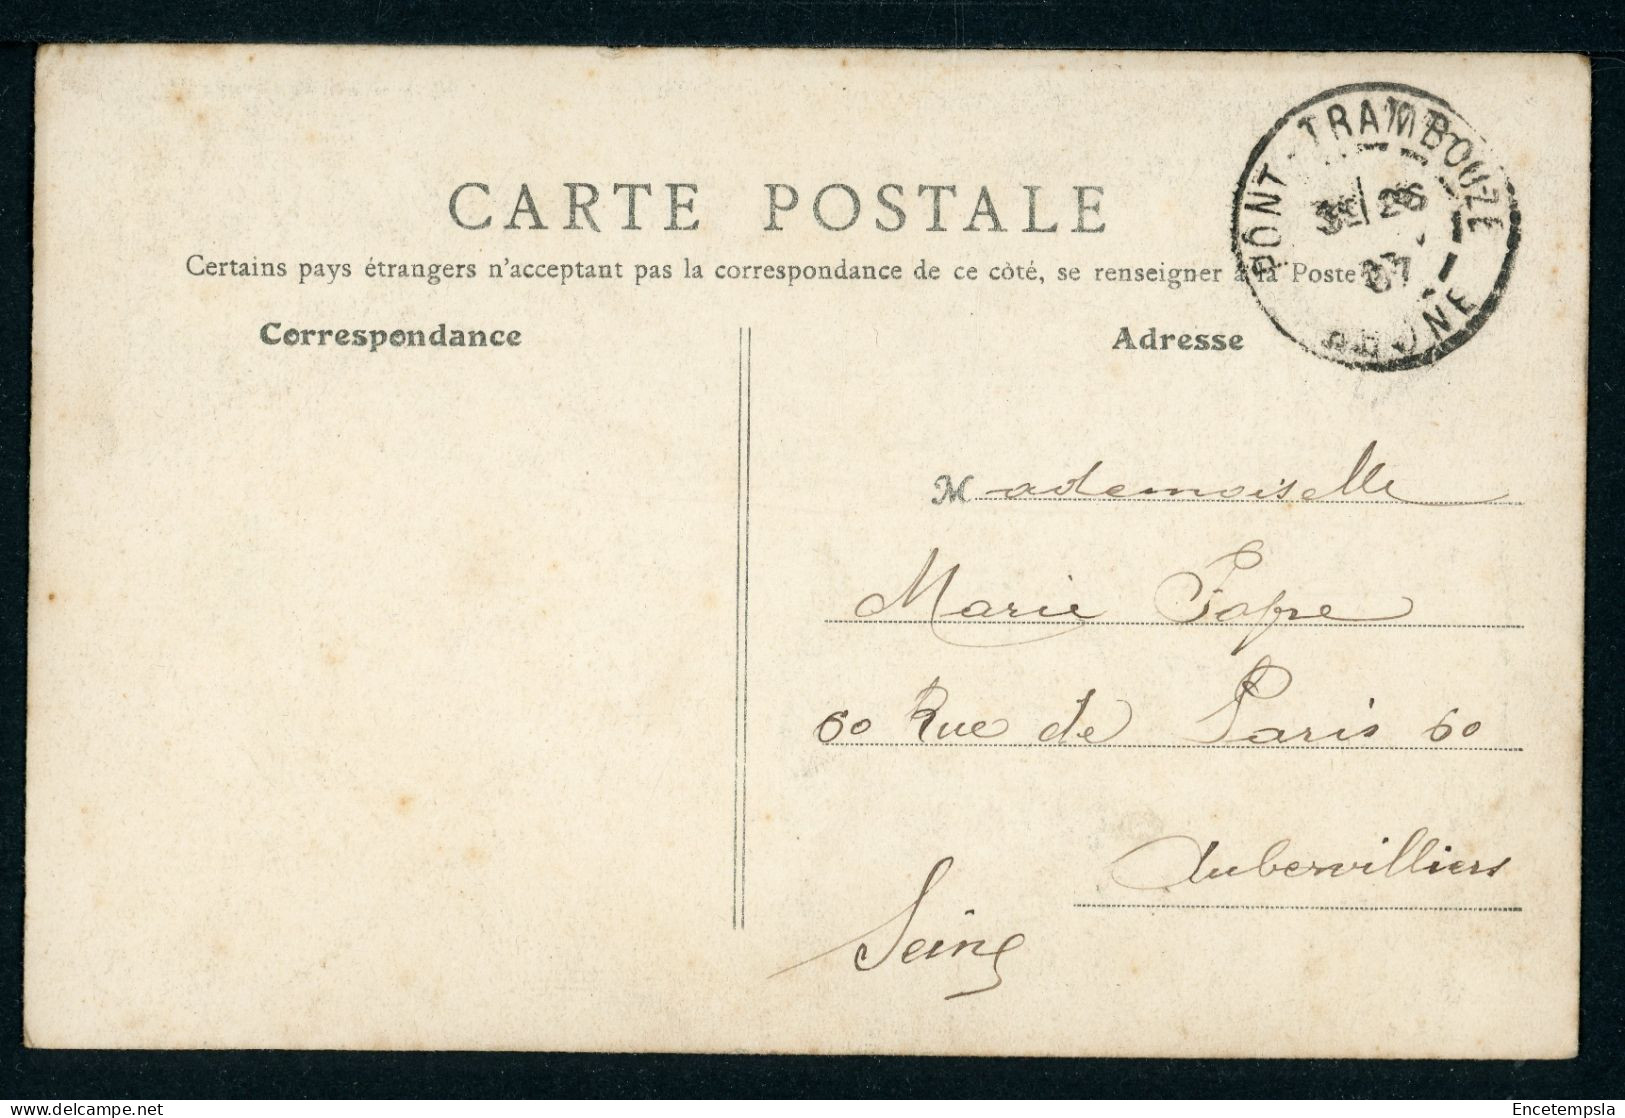 CARTE POSTALE
Certains pays étrangers n'acceptant pas la correspondance de ce côté, se renseigner à la Poste
Correspondance
Adresse
PONT-TRAMBOUZE
26
07
RHONE
Mademoiselle
Marie
60 Rue de Paris 60
Aubervilliers
Seine
delcampe.net
Encetempsla